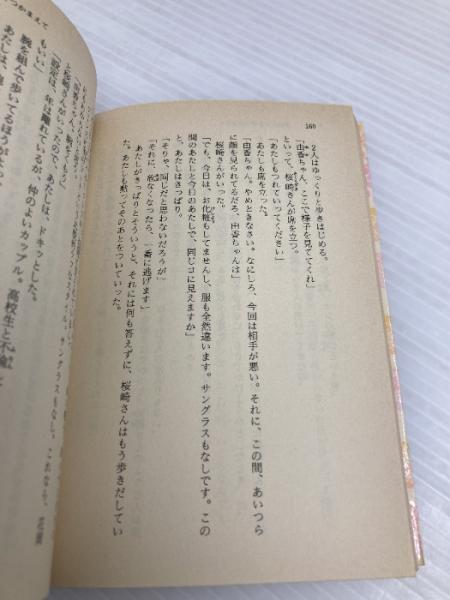 160
2人はゆっくりと歩きはじめる。
「由香ちゃん、ここで様子を見ててくれ」
といって、桜崎さんが席を立つ。
「あたしもつれていってください」
あたしも席を立った。
「由香ちゃん、やめときなさい。なにしろ、今回は相手が悪い。それに、この間、あいつら
に顔を見られてるだろ、由香ちゃんは」
桜崎さんがいった。
「でも、今日は、お化粧もしてませんし、服も全然違います。サングラスもなしです。この
間のあたしと今日のあたしで、同じコに見えますか」
と、あたしはきっぱり。
「そりゃ、同じだと思わないだろうが」
「それに、危なくなったら、一番に逃げます」
あたしがきっぱりとそういうと、それには何も答えずに、桜崎さんはもう歩きだしてい
た。あたしも黙ってそのあとをついていった。
つかまえて
と桜崎さんがいったので、あたしは、ドキッとした。
「設定は、年は離れているが、仲のよいカップル。高校生と
もいい」
腕を組んで歩いてるほうが
あたしは、